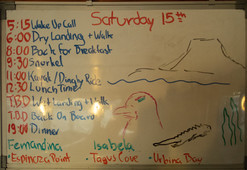 Saturday 15th
5:15 Wake Up Call
6:00 Dry Landing + Walk
8:00 Back for Breakfast
9:30 Snorkel
11:00 Kayak / Dinghy Ride
12:30 Lunch Time
TBD Wet Landing + Walk
TBD Back On Board
19:00 Dinner
Fernandina Isabela
• Espinoza Point • Tagus Cove • Urbina Bay